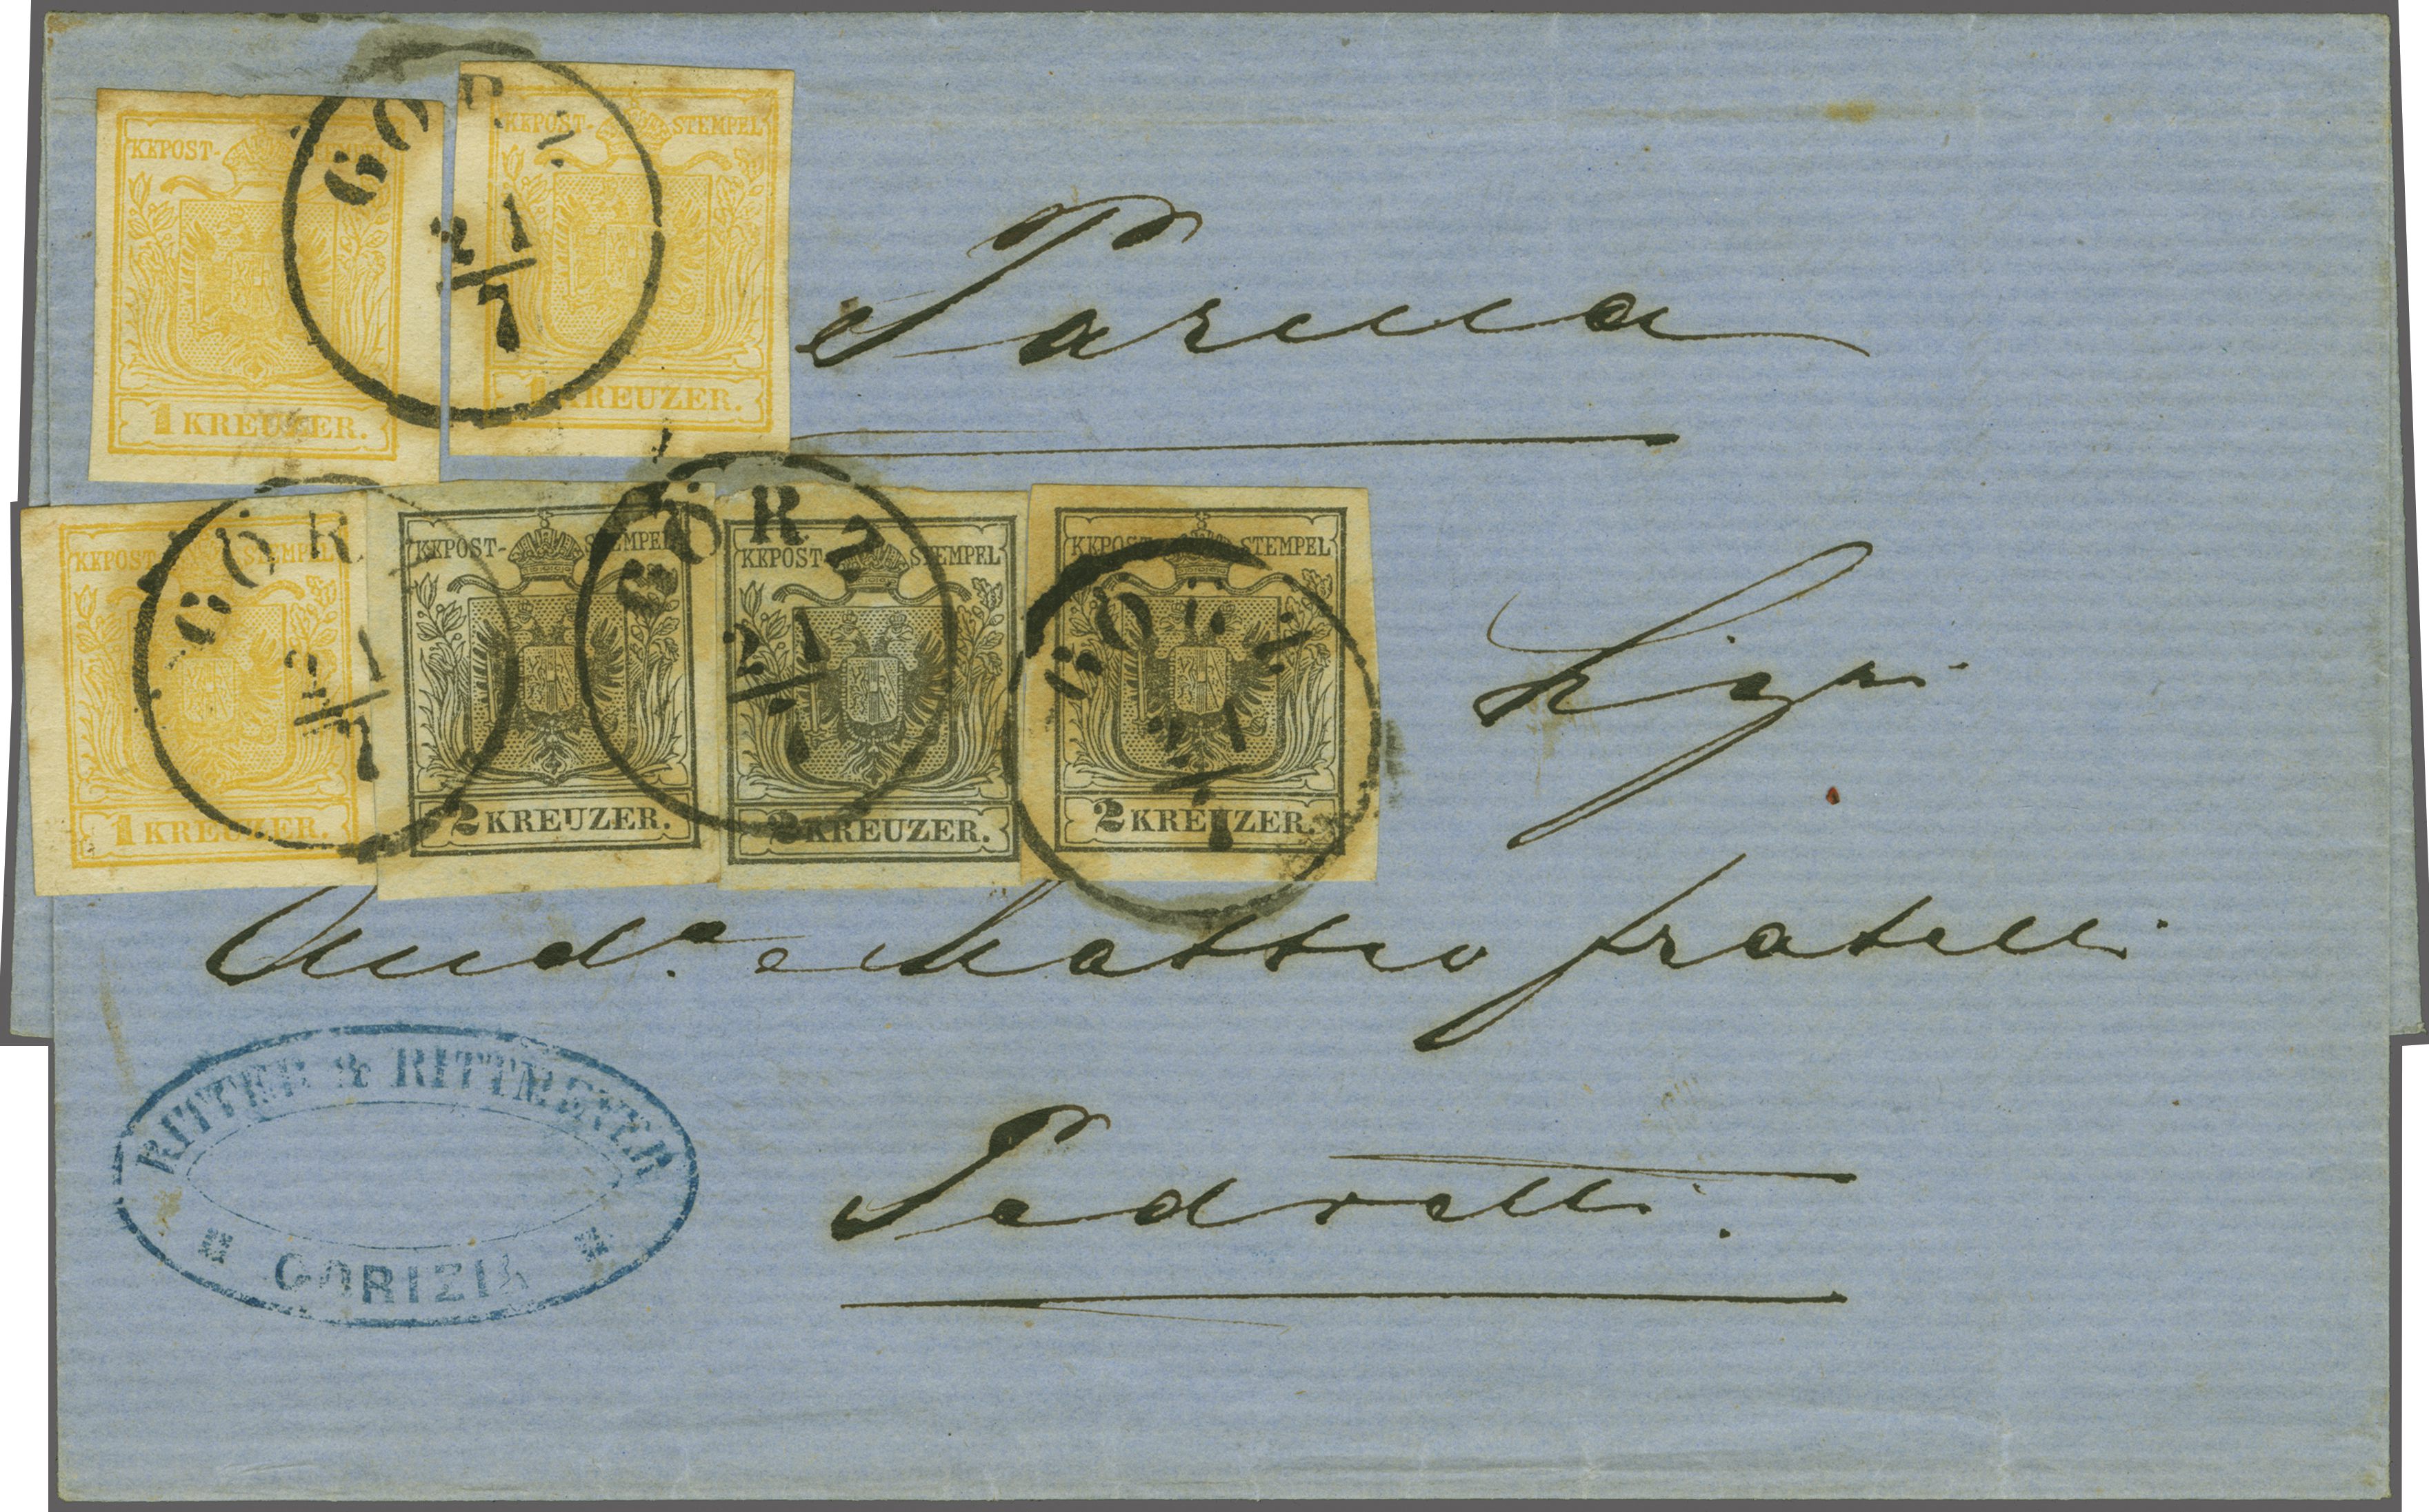 KKPOST-STEMPEL
1 KREUZER.
KKPOST-STEMPEL
1 KREUZER.
GÖRZ
21/7
Parma
KKPOST-STEMPEL
1 KREUZER.
KKPOST-STEMPEL
2 KREUZER.
KKPOST-STEMPEL
2 KREUZER.
KKPOST-STEMPEL
2 KREUZER.
GÖR
21/7
GÖRZ
21/7
GÖRZ
21/7
And.a e Matteo fratelli
Pedretti.
RITTER & RITTMEYER
GORIZIA